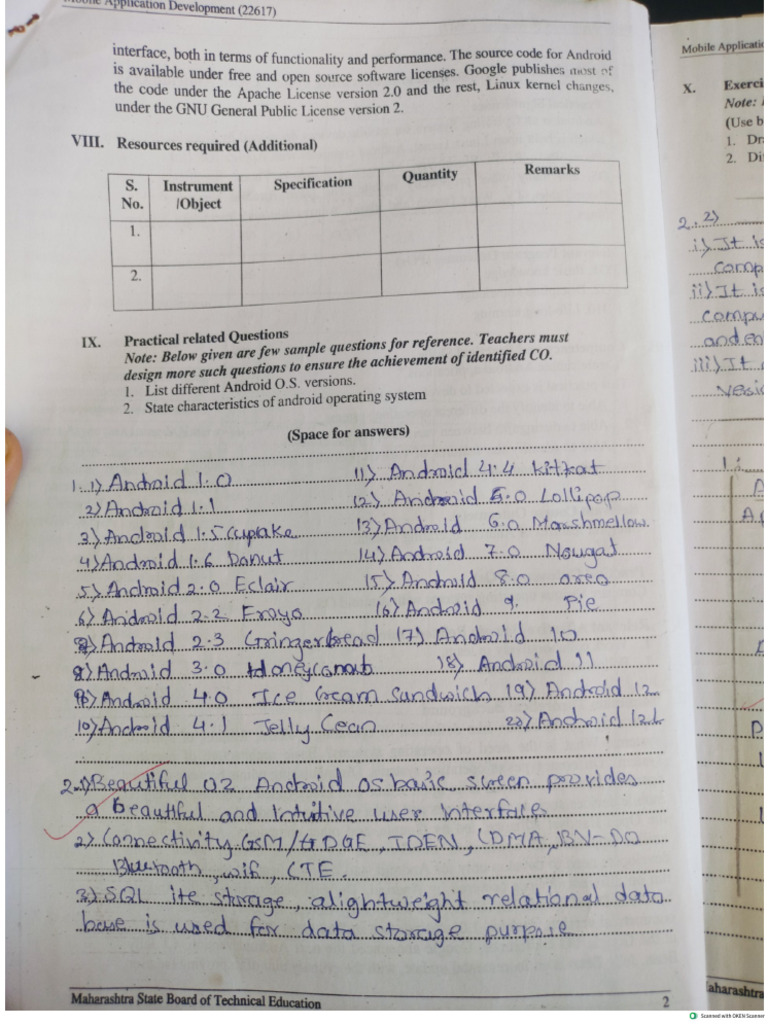 Mobile Application Development (22617)
interface, both in terms of functionality and performance. The source code for Android
is available under free and open source software licenses. Google publishes most of
the code under the Apache License version 2.0 and the rest, Linux kernel changes,
under the GNU General Public License version 2.
VIII. Resources required (Additional)
S. No. Instrument /Object Specification Quantity Remarks
1.
2.
IX. Practical related Questions
Note: Below given are few sample questions for reference. Teachers must
design more such questions to ensure the achievement of identified CO.
1. List different Android O.S. versions.
2. State characteristics of android operating system
(Space for answers)
1. 1) Android 1.0 11) Android 4.4 kitkat
2) Android 1.1 12) Android 5.0 Lollipop
3) Android 1.5 Cupkake 13) Android 6.0 Marshmellow.
4) Android 1.6 Donut 14) Android 7.0 Nougat
5) Android 2.0 Eclair 15) Android 8.0 oreo
6) Android 2.2 Froyo 16) Android 9. Pie
7) Android 2.3 Gringerbread 17) Android 10
8) Android 3.0 Honeycomb 18) Android 11
9) Android 4.0 Ice Cream Sandwich 19) Android 12
10) Android 4.1 Jelly Cean 20) Android 12.L
2.1) Beautiful Android os basic screen provides
a beautiful and Intuitive user Interface
2) Connectivity GSM/EDGE, IDEN, CDMA, EV-DO
Bluetooth, wifi, LTE.
3) SQL ite storage, alightweight relational data
base is used for data storage purpose
Maharashtra State Board of Technical Education 2
Mobile Applicatio
X. Exerci
Note:
(Use b
1. Dr
2. Di
2. 2)
i) It is
comp
ii) It is
compu
and en
iii) It
vesi
1.
A
D
aharashtra
Scanned with OKEN Scanner